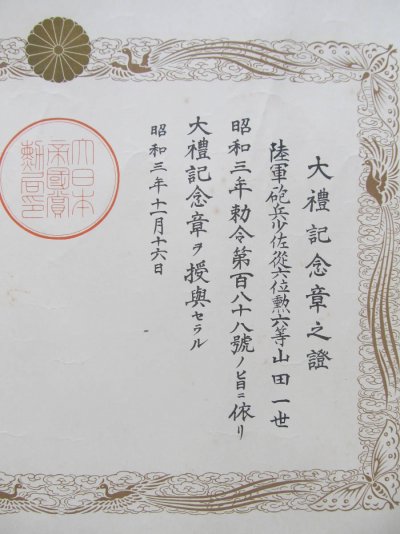 大禮記念章之證
陸軍砲兵少佐從六位勲六等山田一世
昭和三年勅令第百八十八號ノ旨ニ依リ
大禮記念章ヲ授與セラル
昭和三年十一月十六日
大日本
帝國賞
勲局印